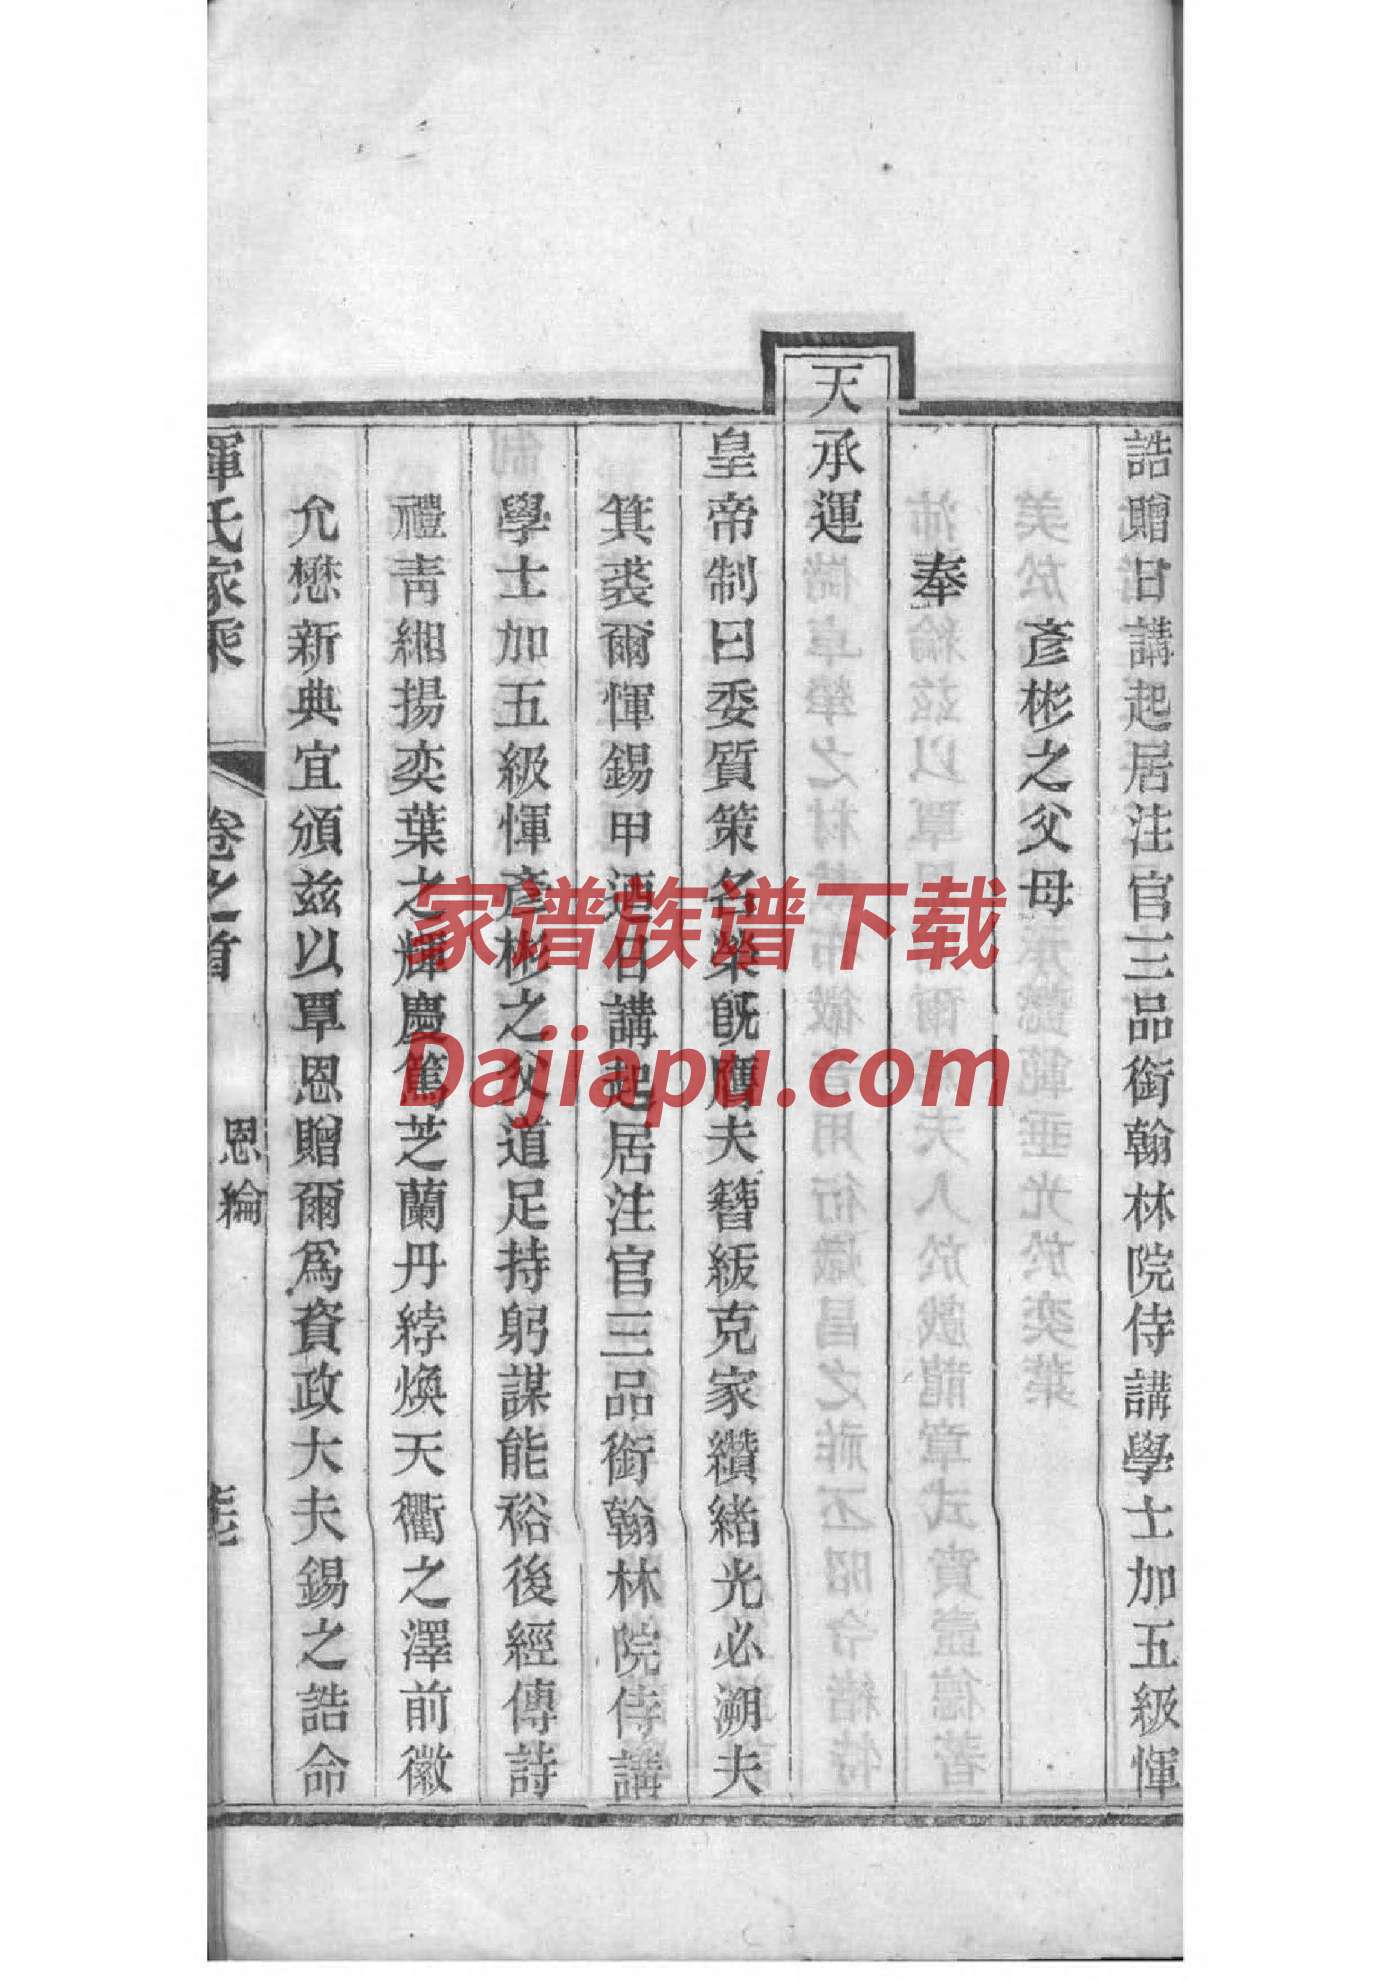 誥贈日講起居注官三品銜翰林院侍講學士加五級惲
彥彬之父母
奉
天承運
皇帝制曰委質策名榮旣膺夫簪紱克家纘緒光必溯夫
箕裘爾惲錫甲迺日講起居注官三品銜翰林院侍講
學士加五級惲彥彬之父道足持躬謀能裕後經傳詩
禮靑緗揚奕葉之輝慶篤芝蘭丹綍煥天衢之澤前徽
允懋新典宜頒兹以覃恩贈爾爲資政大夫錫之誥命
惲氏家乘
卷之首
恩綸
家谱族谱下载
Dajiapu.com